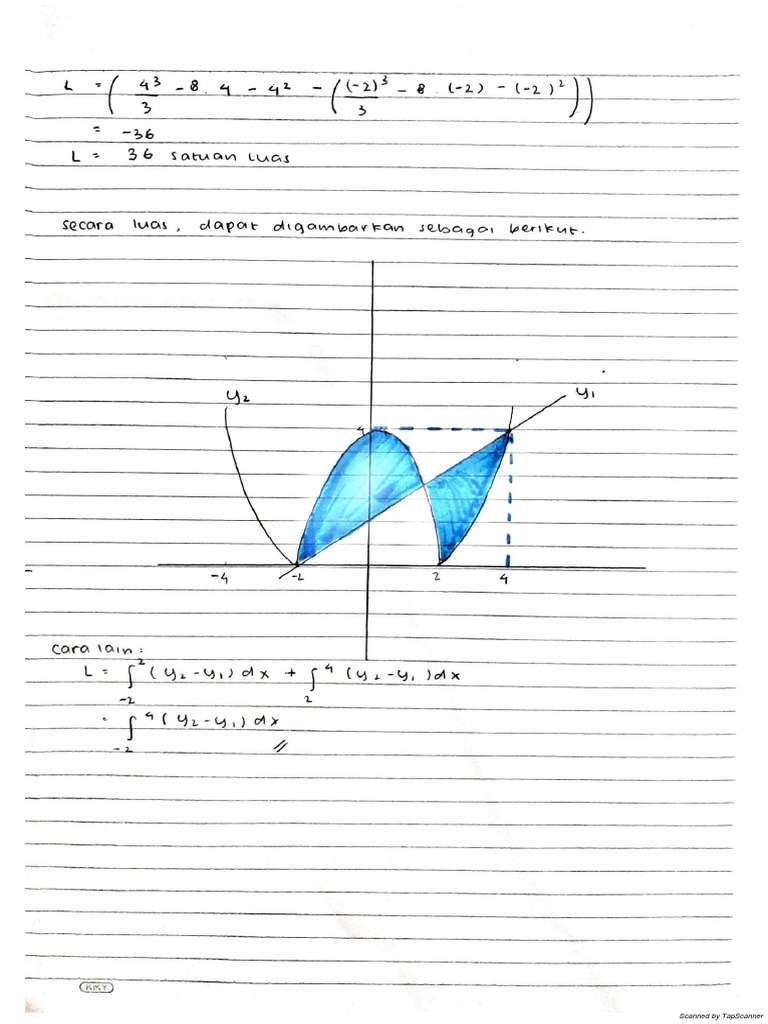 L = ( 4³/3 - 8 . 4 - 4² - ( (-2)³/3 - 8 . (-2) - (-2)² ) )
= -36
L = 36 satuan luas
secara luas, dapat digambarkan sebagai berikut.
y₂ y₁
4
-4 -2 2 4
cara lain :
L = ∫₋₂² (y₂ - y₁) dx + ∫₂⁴ (y₂ - y₁) dx
= ∫₋₂⁴ (y₂ - y₁) dx //
KMY
Scanned by TapScanner